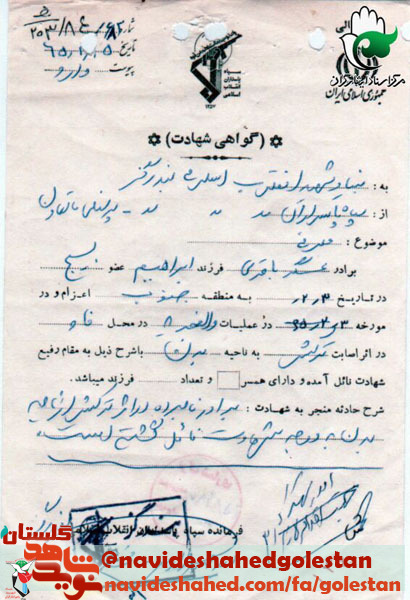 شماره ۲۰۳/۸/۴
تاریخ
پیوست دارد
مرکز اسناد ایثارگران
جمهوری اسلامی ایران
(گواهی شهادت)
به: بنیاد شهید انقلاب اسلامی بندرگز
از: سپاه پاسداران
موضوع: معرفی
برادر عسگر باقری فرزند ابراهیم عضو بسیج
در تاریخ به منطقه جنوب اعزام و در
مورخه در عملیات والفجر ۸ در محل فاو
در اثر اصابت ترکش به ناحیه بدن باشرح ذیل به مقام رفیع
شهادت نائل آمده و دارای همسر و تعداد فرزند میباشد.
شرح حادثه منجر به شهادت: برادر نامبرده در اثر ترکش از ناحیه
بدن به درجه شهادت نائل گشته است
فرمانده سپاه پاسداران انقلاب
نوید شاهد گلستان
@navideshahedgolestan
navideshahed.com/fa/golestan